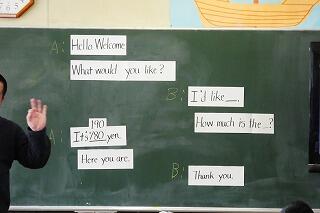 A: Hello. Welcome
What would you like?
B: I'd like __.
How much is the __?
190
A: It's 280 yen.
Here you are.
B: Thank you.